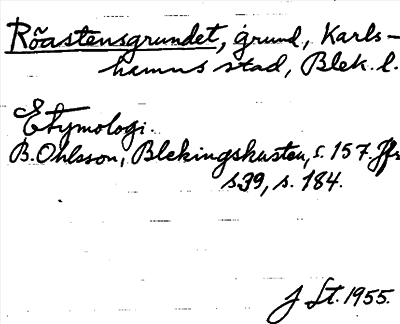 Rõastensgrundet, grund, Karls-
hamns stad, Blek. l.
Etymologi.
B. Ohlsson, Blekingskusten, s. 157. Jfr
s. 39, s. 184.
J St. 1955.